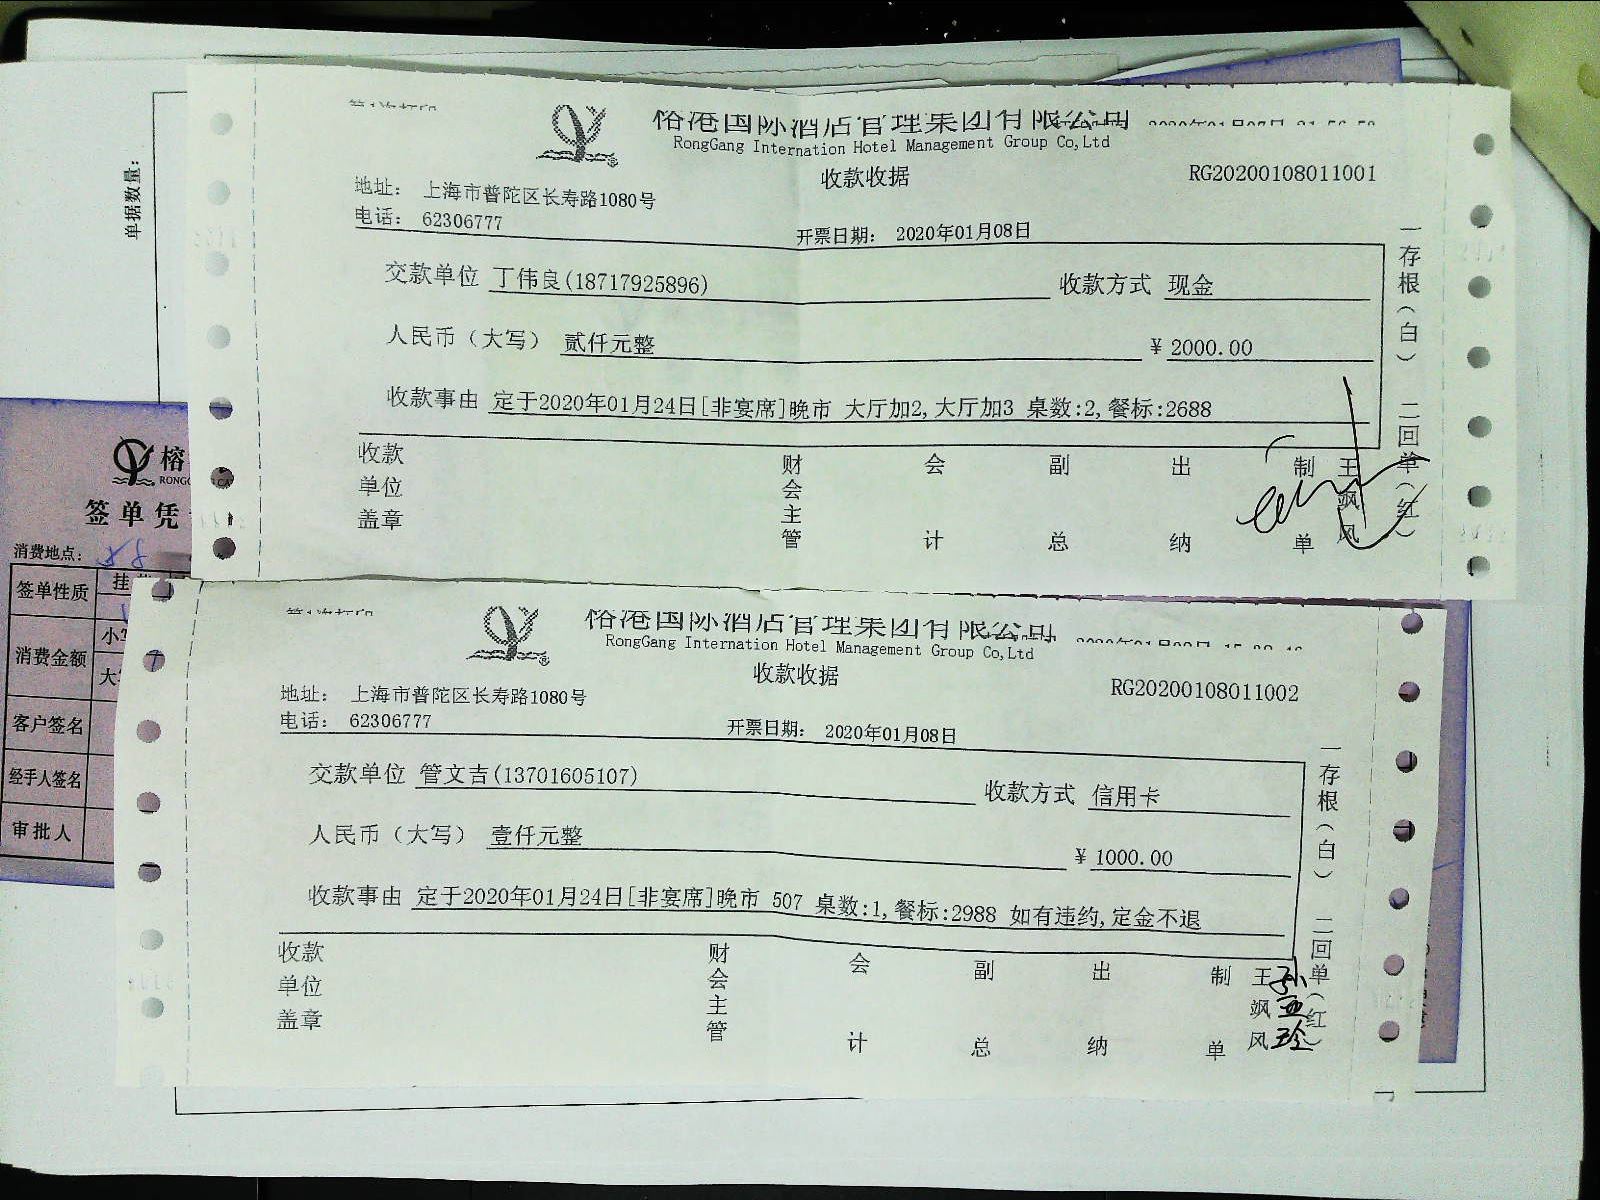 单据数量:
榕港国际酒店管理集团有限公司
RongGang Internation Hotel Management Group Co,Ltd
收款收据
RG20200108011001
地址: 上海市普陀区长寿路1080号
电话: 62306777
开票日期: 2020年01月08日
交款单位 丁伟良(18717925896) 收款方式 现金
人民币(大写) 贰仟元整 ¥ 2000.00
收款事由 定于2020年01月24日[非宴席]晚市 大厅加2,大厅加3 桌数:2,餐标:2688
收款单位盖章 财会主管 会计 副总 出纳 制单 王飒风
一存根(白) 二回单(红)
榕
签单凭
消费地点:
签单性质 挂
消费金额 小写
大
客户签名
经手人签名
审批人
榕港国际酒店管理集团有限公司
RongGang Internation Hotel Management Group Co,Ltd
收款收据
RG20200108011002
地址: 上海市普陀区长寿路1080号
电话: 62306777
开票日期: 2020年01月08日
交款单位 管文吉(13701605107) 收款方式 信用卡
人民币(大写) 壹仟元整 ¥ 1000.00
收款事由 定于2020年01月24日[非宴席]晚市 507 桌数:1,餐标:2988 如有违约,定金不退
收款单位盖章 财会主管 会计 副总 出纳 制单 王飒风
一存根(白) 二回单(红)